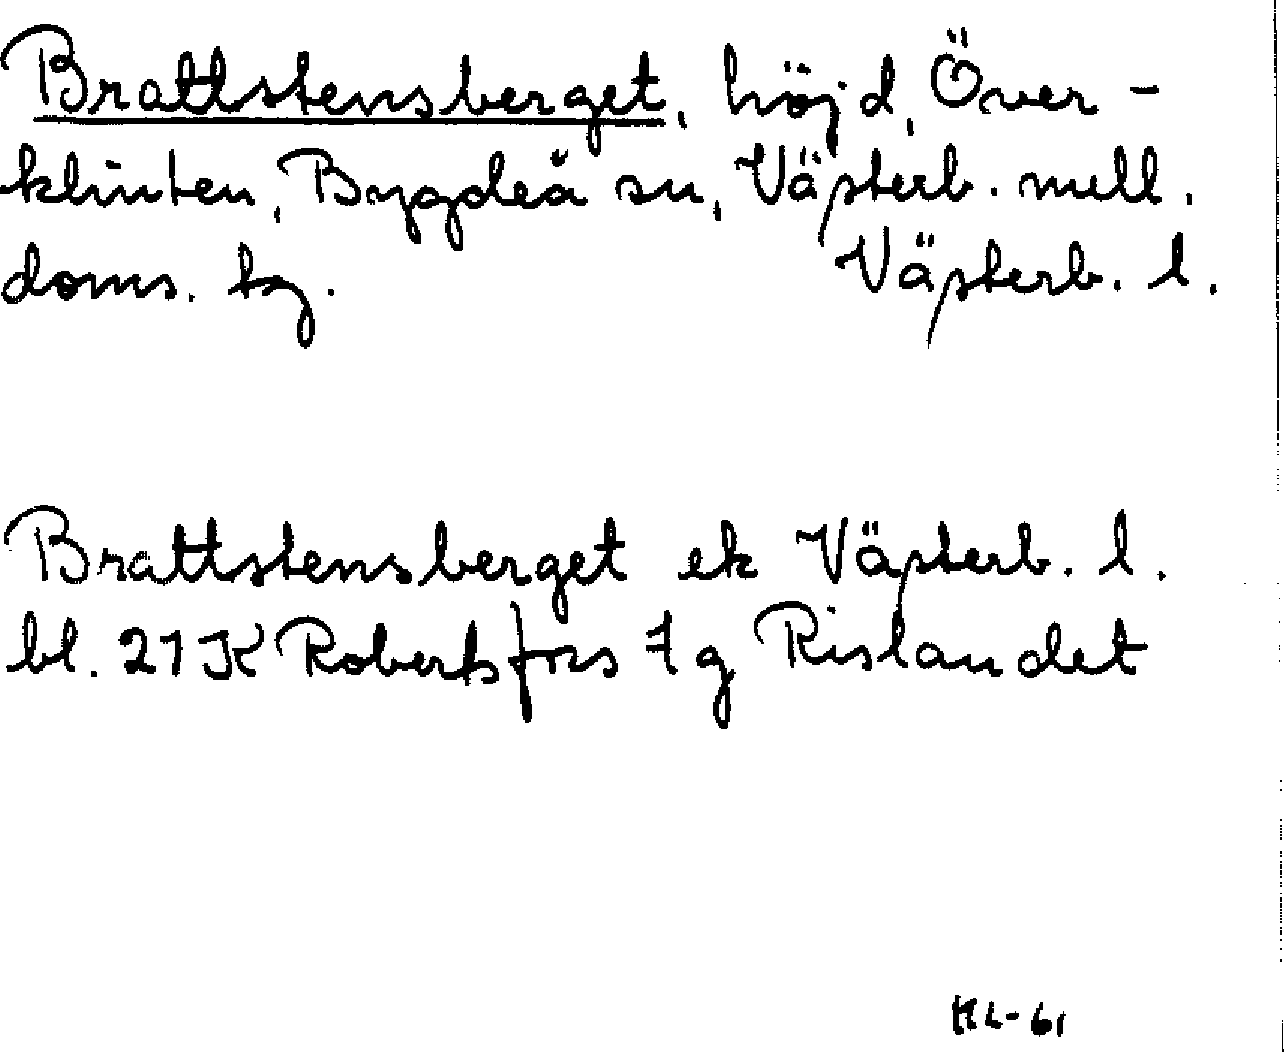 Brattstensberget, höjd, Över-
klinten, Bygdeå sn, Västerb. mell.
doms. tg. Västerb. l.
Brattstensberget ek Västerb. l.
bl. 21K Robertsfors 7g Rislandet
HL-61